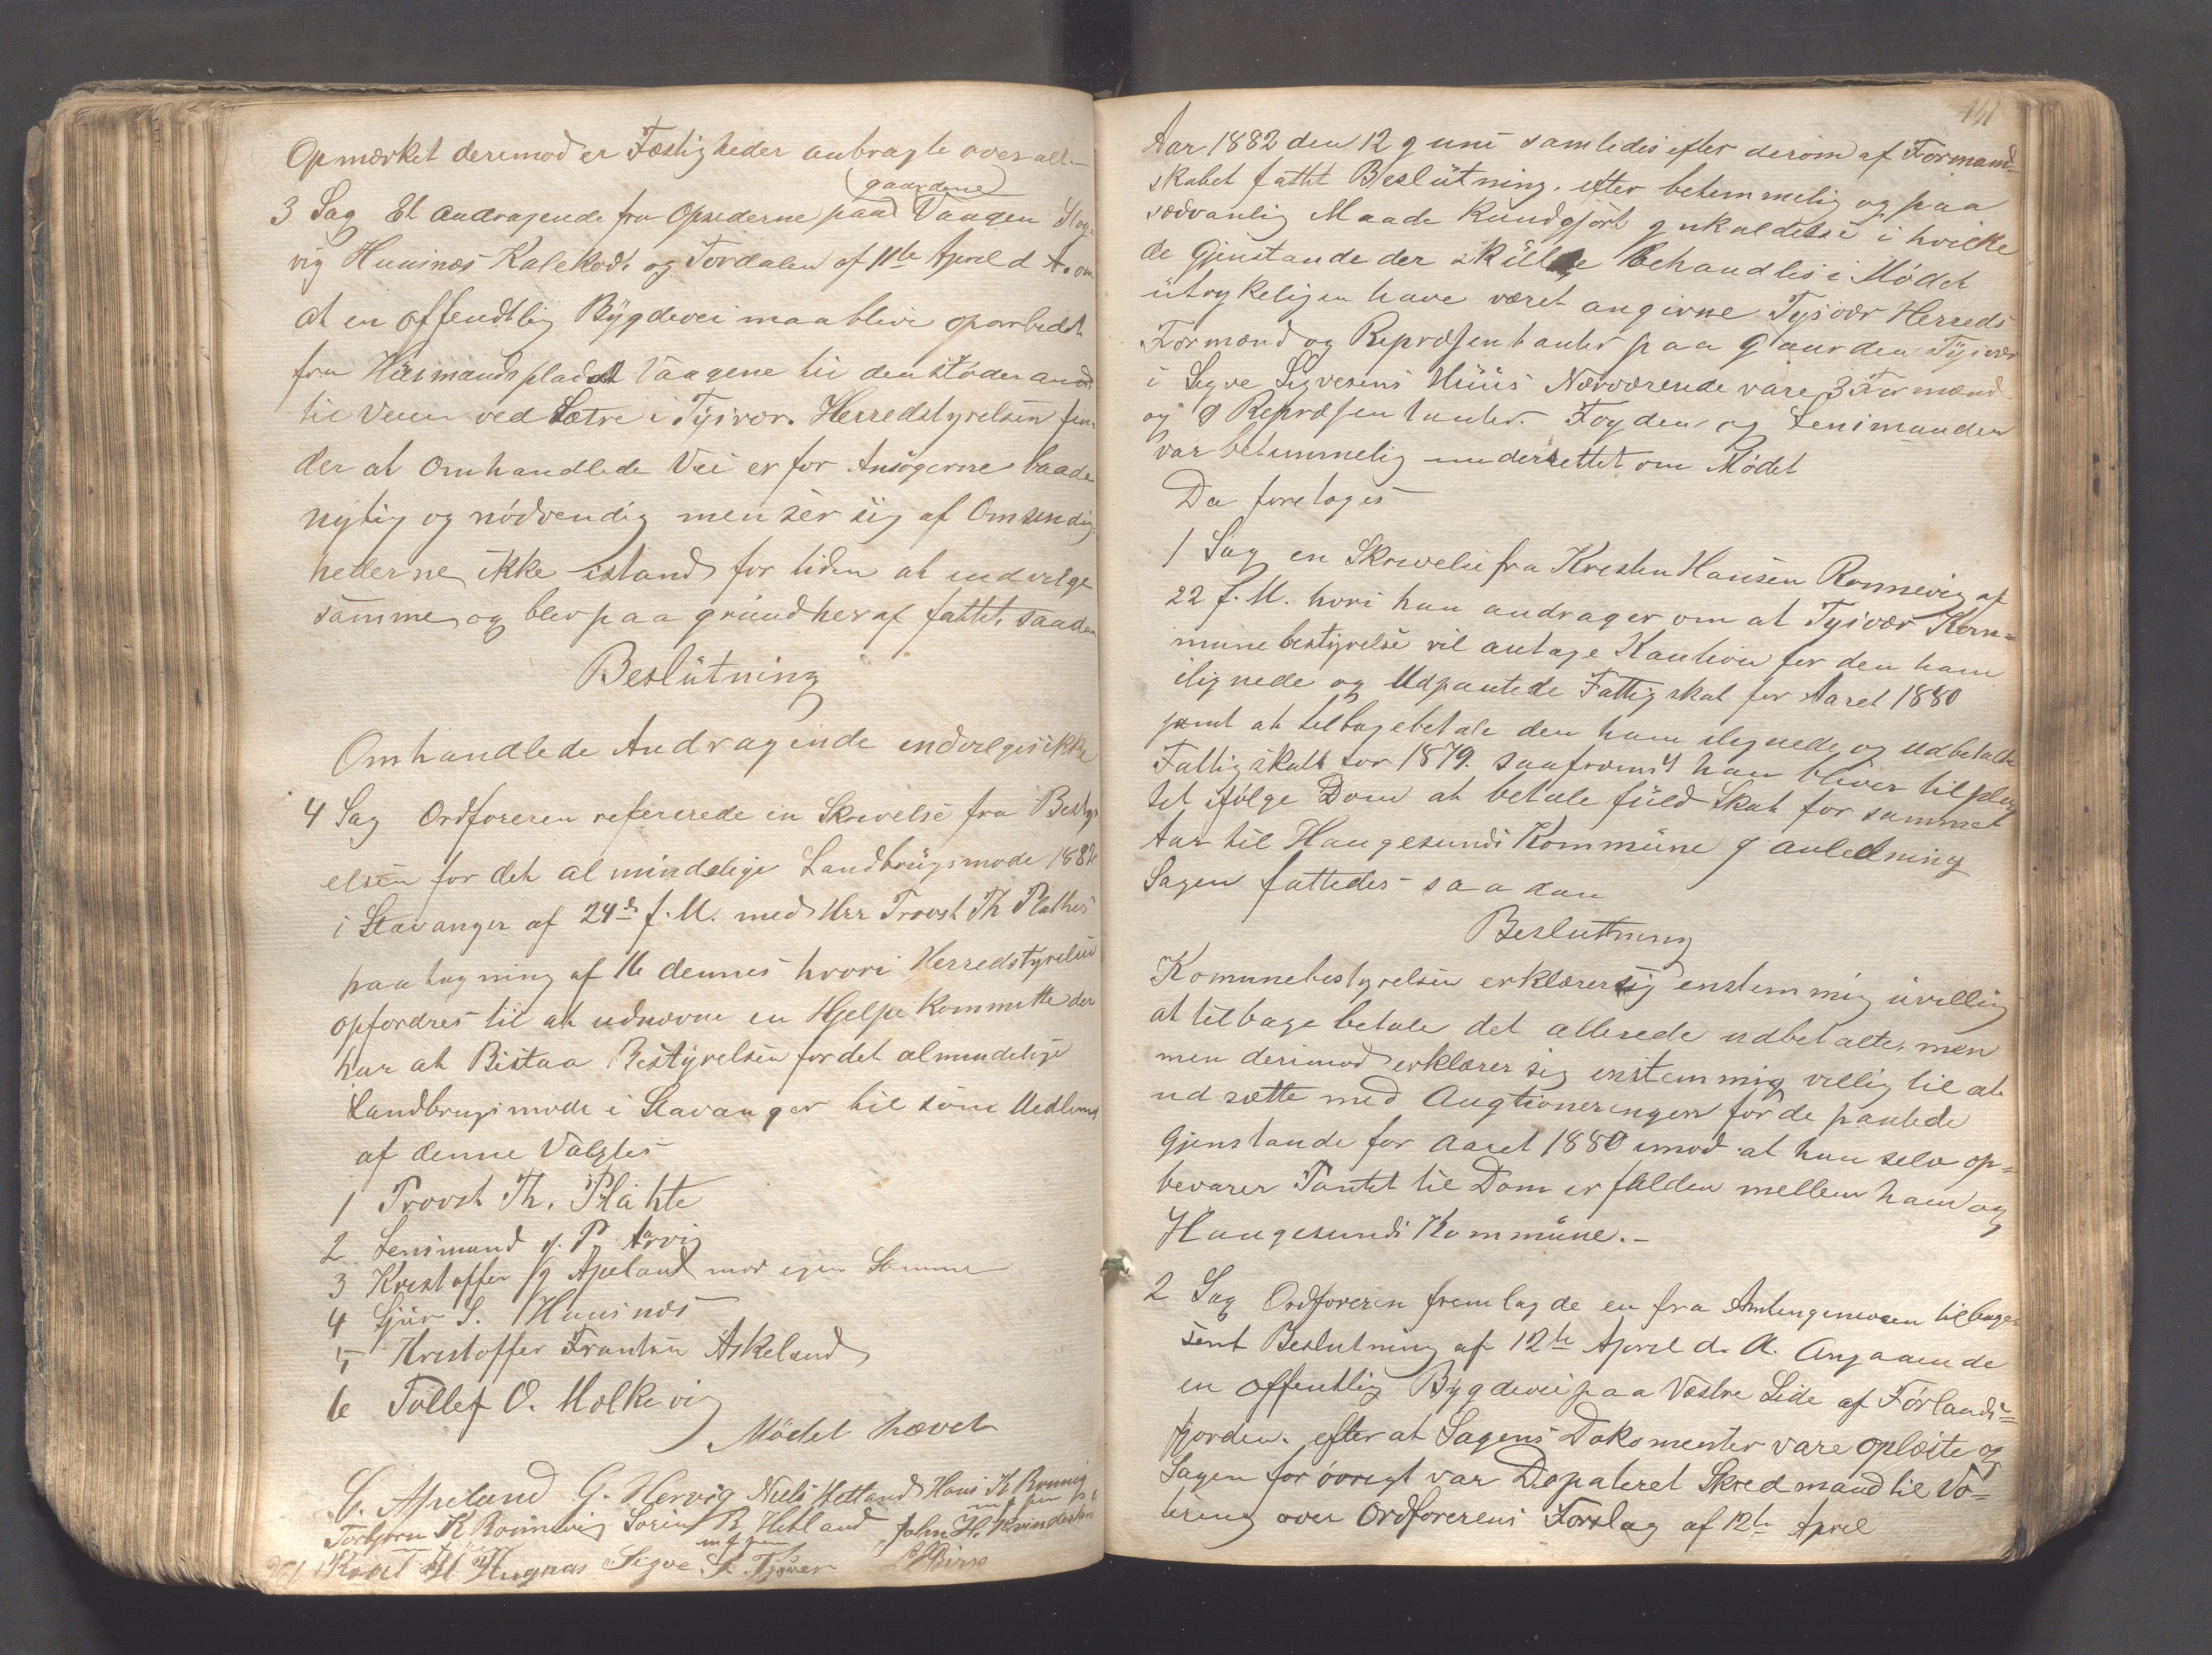 Opmærket derimod er Fæstigheder anbragte over alt.—
(gaardene)
3 Sag Et andragende fra Opsiderne paa Vaagen Slog-
vig Huusnæs Kalekod. og Tordalen af 11te April d A. om
at en offendtlig Bygdevei maa blive oparbedet
fra Huusmandspladset Vaagene til den støder and
til Veien ved Sætre i Tysvær. Herredstyrelsen fin-
der at Omhandlede Vei er for Ansøgerne baade
nytig og nödvendig men sér sig af Omsendig-
hederne ikke istand for tiden at indvilge
samme og blev paa grund her af fattet saadan
Beslutning
Omhandlede Andragende indvelges ikke
4 Sag Ordforeren refererede en Skrivelse fra Besty-
elsen for det almindelige Landbrugsmøde 1882
i Stavanger af 24de f. M. med Herr Provst Th Plathes
paategning af 16 dennes hvori Herredstyrelsen
opfordres til at udnævne en Hjelpe Kommitte der
har at Bistaa Bestyrelsen for det almindelige
Landbrugsmøde i Stavanger til some Medlemmer
af denne Valgtes
1 Provst Th. Plahte
2 Lensmand J. P. Arvig
3 Kristoffer G Apeland mod egen Stemme
4 Sjur S. Huusnæs
5 Kristoffer Frantsen Askeland
6 Tollef O. Molkevig
Mödet hævet
C. Apeland G. Hervig Niels Hetland Hans K Rønnevig
m f pen
Torbjørn K Rønnevig Sören R Hetland John H. Kvinderhei
m f pen
Knut H Hugnas Sigve S. Tysvær
141
Aar 1882 den 12 Juni samledes efter derom af Formand-
skabet fattet Beslutning. efter betemmelig og paa
sædvanlig Maade Kundgjort Jnkaldelse i hvilke
de Gjenstande der skulle Behandles i Mødet
utrykeligen have været angivne Tysvær Herreds
Formænd og Repræsentanter paa Gaarden Tysvær
i Sigve Sigvesens Huus Nærværende vare 3 Formænd
og 9 Repræsentanter. Fogden og Lensmanden
var betemmelig underrettet om Mödet
Da foretoges
1 Sag en Skrivelse fra Kristen Hansen Rønnevig af
22 f. M. hvori han andrager om at Tysvær Kom=
munebestyrelse vil antage Kaution for den ham
ilignede og Udpantede Fattigskat for Aaret 1880
samt at tilbagebetale den ham ilignede og udbetalte
Fattigskatt for 1879. saafremt han bliver tilpleg
tet ifølge Dom at betale fuld Skat for samme
Aar til Haugesunds Kommune J anledning
Sagen fattedes saadan
Beslutning
Komunebestyrelsen erklærer sig enstemmig uvillig
at tilbage betale det allerede udbetalte. men
men derimod erklærer sig enstemmig villig til at
udsætte med Augtioneringen for de pantede
Gjenstande for Aaret 1880 imod at han selv op=
bevarer Pantet til Dom er falden mellem ham og
Haugesunds Kommune.—
2 Sag Ordforeren fremlagde en fra Amtingeniøren tilbage-
sent Beslutning af 12te April d. A. Angaaende
en offentlig Bygdevei paa Vestre Side af Førlands=
fjorden. efter at Sagens Dokomenter vare oplæste og
Sagen for övrigt var Dispateret Skred mand til Vo=
tering over Ordforerens Forslag af 12te April